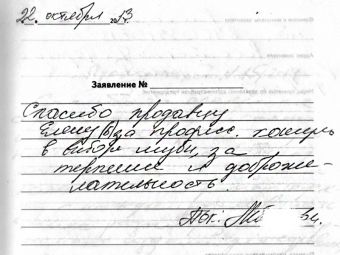 22. октября 2013.
Заявление №
Спасибо продавцу
Елену(е) за професс. помощь
в выборе шубы, за
терпение и доброже-
лательность.